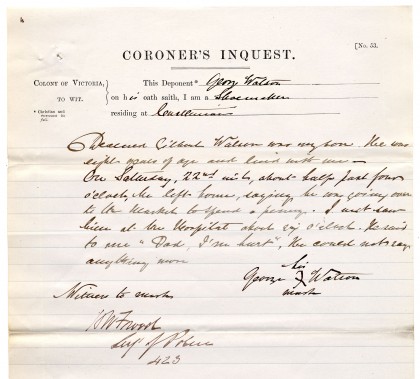 CORONER'S INQUEST.
[No. 53.
COLONY OF VICTORIA,
TO WIT.
* Christian and surname in full.
This Deponent* George Watson
on his oath saith, I am a Shoemaker
residing at
Deceased Gilbert Watson was my son. He was
eight years of age and lived with me —
On Saturday, 22nd inst, about half past four
o'clock, he left home, saying he was going over
to the Market to spend a penny. I next saw
him at the Hospital about o'clock. He said
to me "Dad, I'm hurt", He could not say
anything more
his
George X Watson
mark
Witness to mark
Sergt of Police
423